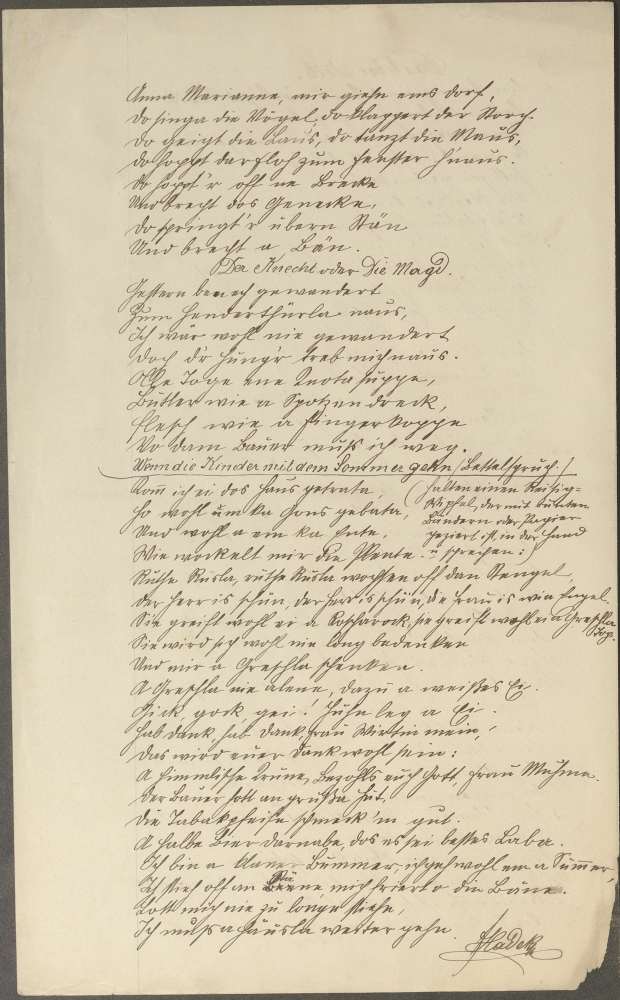 Anna Marianne, mir giehn ems Dorf,
Do singa die Vögel, do klappert der Storch.
Do geigt die Laus, do tanzt die Maus,
Do hoppt dar Floh zum Fenster h'naus.
Do hoppt'r off ne Brecke
Und brecht dos Genecke,
Do springt'r übern Stän
Und brecht a Bän.
Der Knecht oder Die Magd.
Gestern ben ech gewandert
Zum Henderthürla naus,
Ich wär wohl nie gewandert
Doch d'r Hung'r treb mich naus.
Olle Toge ene Knota suppe,
Butter wie a Spotzendreck,
Flesch wie a Fingerkoppe
Vo dam Bauer muß ich weg.
Wenn die Kinder mit dem Sommer gehn (Bettelspruch.)
Kom ich ei dos Haus getrata,
Ho wohl um ka Gons gebata,
Und wohl a em ka Ente,
Wie wockelt mir die
halten einen Reisig=
Wipfel, der mit bunten
Bändern oder Papier
geziert ist, in der Hand
u. sprechen:)
Ruthe Rusla, ruthe Rusla wochsen off dan Stengel,
Der Herr is schün, der Herr is schün, die Frau is wie a Engel.
Sie greift wohl ei a sie greift wohl ei a Greschla
Top.
Sie wird sech wohl nie long bedenken
Und mir a Greschla schenken.
A Greschla nie alene, dazu a weißes Ei.
Gick, gock, gei! Huhn leg a Ei.
Hab Dank, hab Dank, Frau Wirtin mein,
Das wird euer Dank wohl sein:
A himmlische Krune, Bezohls euch Gott, Frau Muhme.
Der Bauer hott an grußa Hut,
Die Tabakpfeife schmeckt 'm gut.
A halbe Bier darnabe, dos is sei bestes Laba.
Ich bin a klaner Bummer, ich geh wohl em a Summer,
Ich stieh off an mich frierts o die Bäne.
Lott mich nie zu longe stiehe,
Ich muß a Häusla weiter gehn.
Hladek